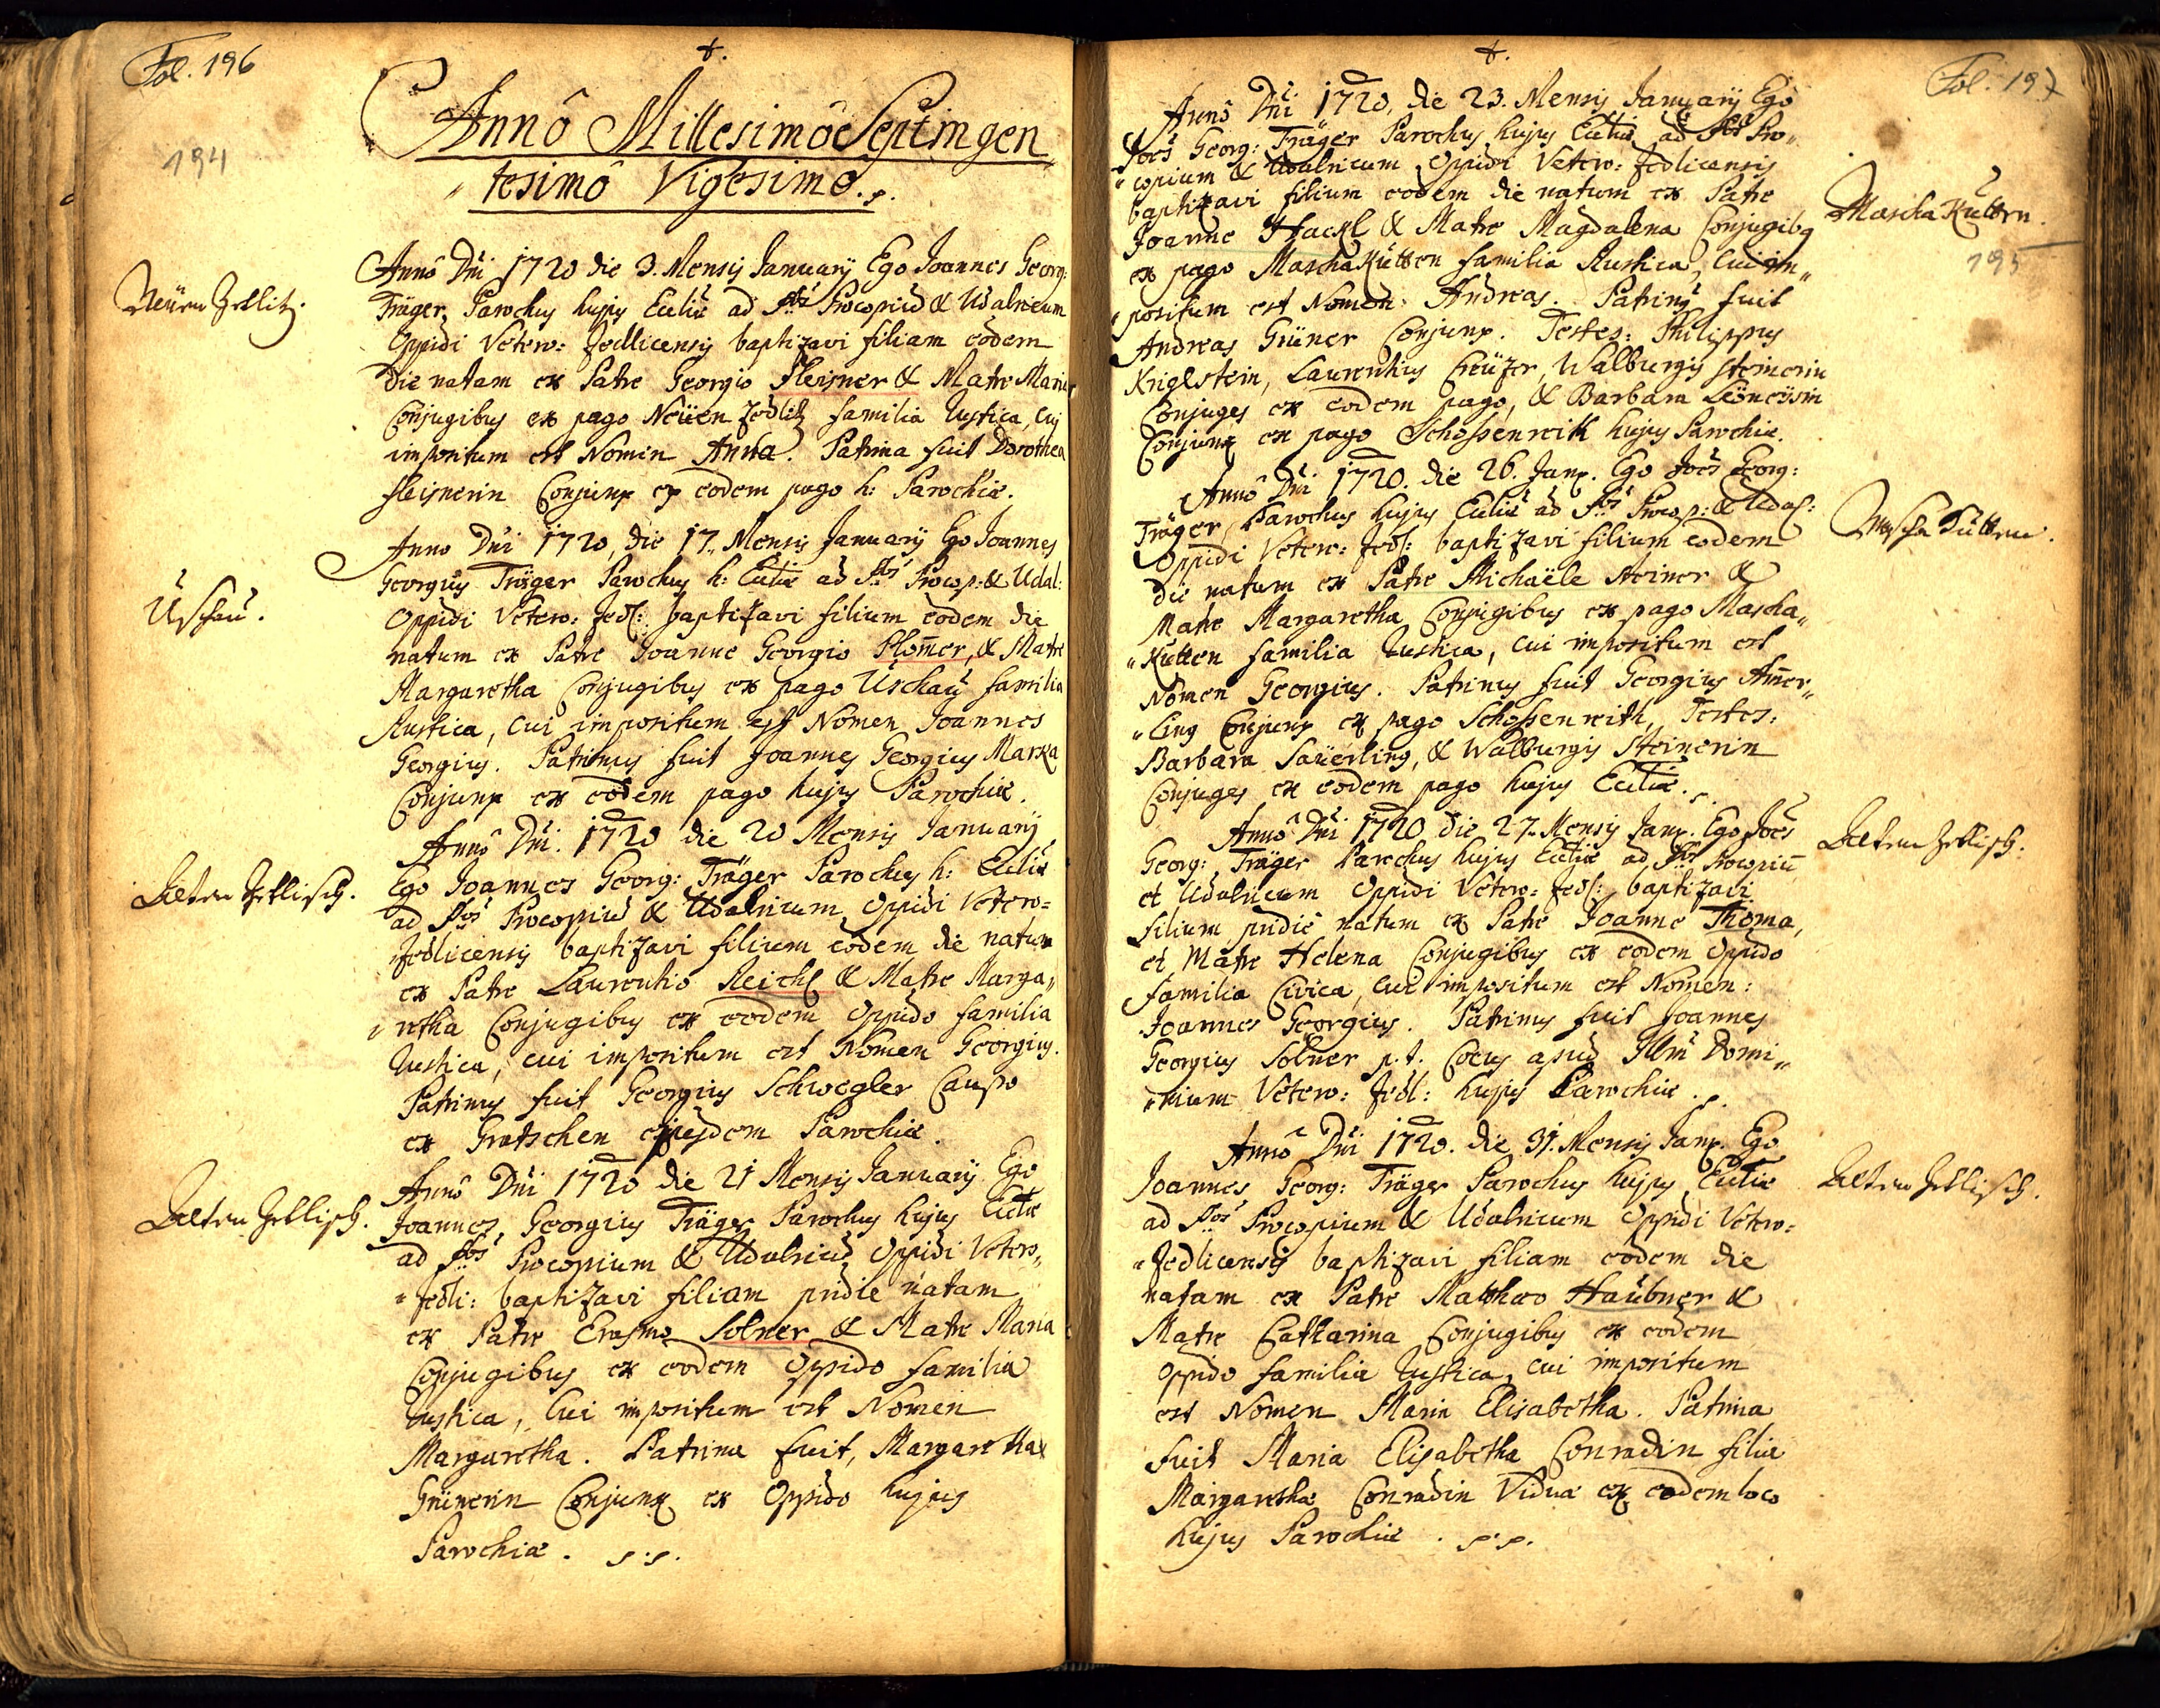 Fol. 196
194
Annô Millesimô Septingen
"tesimô Vigesimo.
Neüen Zetlitz.
Annô Dni 1720 die 3. Mensis January Ego Joannes Georg:
Träger, Parochus hujus Eccliæ ad SSos Procopiũ & Udalricum
Oppidi Vetero: Zedlicensis baptizavi filiam eodem
die natam ex Patre Georgio Fleisner & Matre Maria,
Conjugibus ex pago Neüen Zedlitz familia rustica, cuj
impositum est Nomin Anna. Patrina fuit Dorothea
fleisnerin Conjunx ex eodem pago h: Parochiæ.
Üschau.
Anno Dni 1720, die 17. Mensis January Ego Joannes
Georgius Träger Parochus h: Eccliæ ad SSos Procop: & Udal:
Oppidi Vetero: Zedl: baptizavi filium eodem die
natum ex Patre Joanne Georgio Plom̃er, & Matre
Margaretha Conjugibus ex pago Üschau familia
Rustica, cui impositum est Nomen Joannes
Georgius. Patrinus fuit Joannes Georgius Marxa
Conjunx ex eodem pago hujus Parochiæ.
Alten Zetlisch.
Annô Dni. 1720 die 20 Mensis January
Ego Joannes Georg: Träger Parochus h: Eccliæ
ad SSos Procopiũ & Udalricum Oppidi Vetero=
"Zedlicensis baptizavi filium eodem die natum
ex Patre Laurentio Reichl & Matre Marga"
"retha Conjugibus ex eodem Oppido familia
rustica, cui impositum est Nomen Georgius.
Patrinus fuit Georgius Schwegler Caupo
ex Gratschen ejusdem Parochiæ.
Alten Zetlisch.
Annô Dni 1720 die 21 Mensis January Ego
Joannes Georgius Träger Parochus hujus Eccliæ
ad SSos Procopium & Udalricũ Oppidi Vetero"
"Zedli: baptizavi filiam pridie natam
ex Patre Erasmo Solner & Matre Maria
Conjugibus ex eodem Oppido familia
rustica, cui impositum est Nomen
Margaretha. Patrina fuit, Margaretha
Grünerin Conjunx ex Oppido hujus
Parochiæ.
Fol. 197
195
Mascha Kutten.
Annô Dni 1720, die 23. Mensis January Ego
Joes Georg: Träger Parochus hujus Eccliæ ad SSos Pro"
"copium & Udalricum Oppidi Vetero: Zedlicensis
baptizavi filium eodem die natum ex Patre
Joanne Hackl & Matre Magdalena Conjugibus
ex pago MaschaKütten familia Rustica, cui im"
"positum est Nomen: Andreas. Patrinus fuit
Andreas Grüner Conjunx. Testes: Philippus
Kriglstein, Laurentius Creüzer, Walburgis Steinerin
Conjuges ex eodem pago, & Barbara Leöneysin
Conjunx ex pago Schossenreith hujus Parochiæ.
Mascha Kutten.
Annô Dni 1720. die 26. Janr. Ego Joes Georg:
Träger Parochus hujus Eccliæ ad SSos Procop: & Udal:
Oppidi Vetero: Zedl: baptizavi filium eodem
die natum ex Patre Michaële Steiner &
Matre Margaretha Conjugibus ex pago Mascha"
"Kutten familia rustica, cui impositum est
Nomen Georgius. Patrinus fuit Georgius Am̃er"
"ling Conjunx ex pago Schossenreith, Testes:
Barbara Saüerling, & Walburgis Steinerin
Conjuges ex eodem pago hujus Eccliæ.
Alten Zetlisch.
Annô Dni 1720 die 27. Mensis Janr. Ego Joes
Georg: Träger Parochus hujus Eccliæ ad SSos Procopiũ
et Udalricum Oppidi Vetero: Zedl: baptizavi
filium pridie natum ex Patre Joanne Thoma,
et Matre Helena Conjugibus ex eodem Oppido
familia Civica, cui impositum est Nomen:
Joannes Georgius. Patrinus fuit Joannes
Georgius Solner p.t. Cocus apud Illm Domi"
"nium Vetero: Zedl: hujus Parochiæ.
Alten Zetlisch.
Annô Dni 1720. die 31. Mensis Janr. Ego
Joannes Georg: Träger Parochus hujus Eccliæ
ad SSos Procopium & Udalricum Oppidi Vetero=
"Zedlicensis baptizavi filiam eodem die
natam ex Patre Matthæo Haübner &
Matre Catharina Conjugibus ex eodem
Oppido familia rustica, cui impositum
est Nomen Maria Elisabetha. Patrina
fuit Maria Elisabetha Conradin filia
Margaretha Conradin Vidua ex eodem loco
hujus Parochiæ.